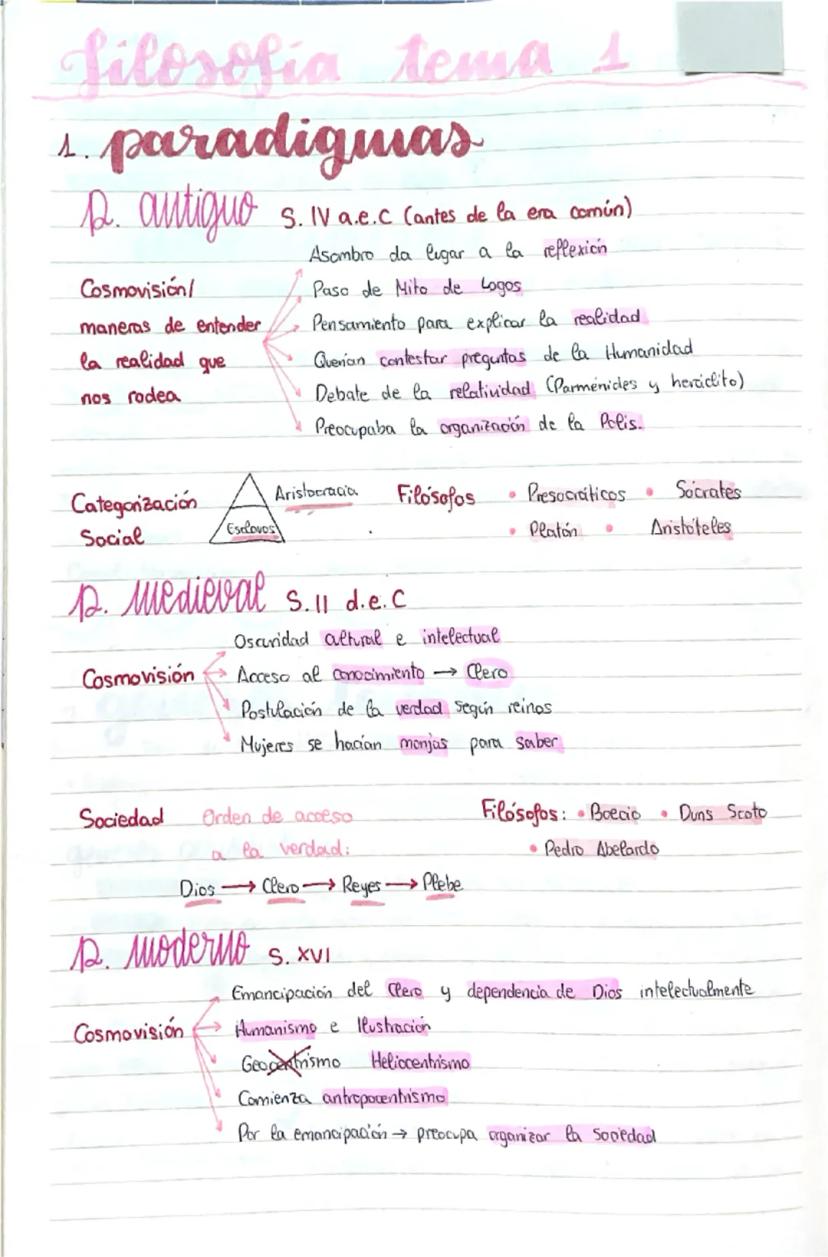 filosofía tema 1
1. paradigmas
P. antiguo S. IV a.e.C (antes de la era común)
Cosmovisión/
maneras de entender
la realidad que
nos rodea
Asombro da lugar a la reflexión
Paso de Mito de Logos
Pensamiento para explicar la realidad
Querían contestar preguntas de la Humanidad
Debate de la relatividad (Parménides y heráclito)
Preocupaba la organización de la Polis.
Categorización
Social
Aristocracia
Esclavos
Filósofos • Presocráticos • Sócrates
• Platón • Aristóteles
P. medieval S. II d.e.C
Cosmovisión
Oscuridad cultural e intelectual
Acceso al conocimiento → Clero
Postulación de la verdad según reinos
Mujeres se hacían monjas para saber
Sociedad Orden de acceso
a la verdad:
Dios → Clero → Reyes → Plebe
Filósofos: • Boecio • Duns Scoto
• Pedro Abelardo
P. moderno S. XVI
Cosmovisión
Emancipación del Clero y dependencia de Dios intelectualmente
Humanismo e Ilustración
Geocentrismo Heliocentrismo
Comienza antropocentrismo
Por la emancipación → preocupa organizar la sociedad